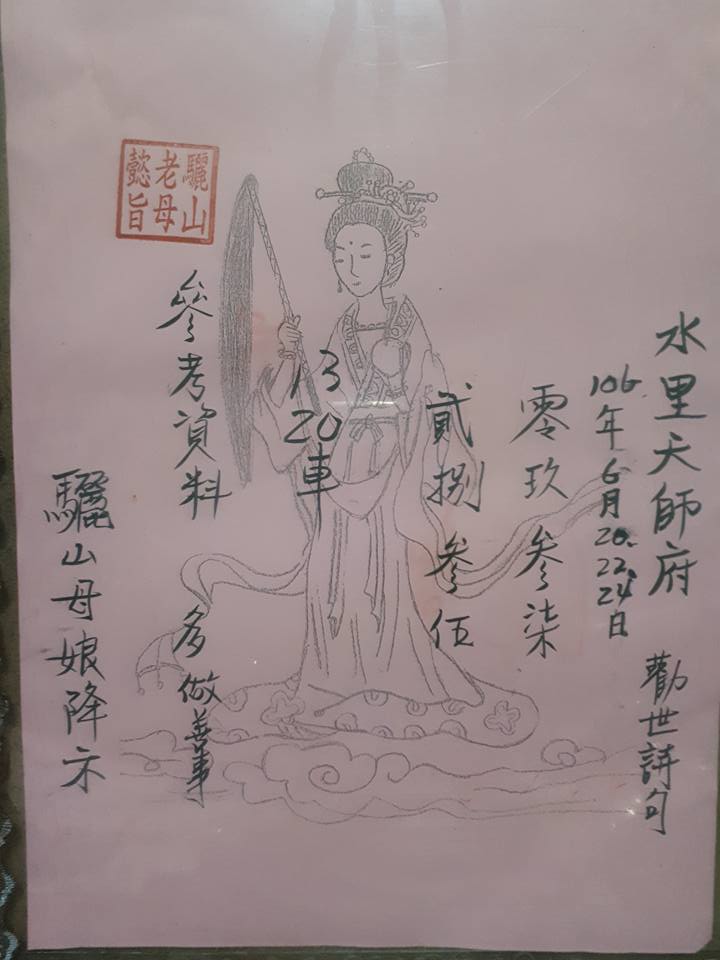 水里天師府
勸世詩句
106年6月20.22.24日
零玖參柒
貳捌參伍
13
20車
參考資料
多做善事
驪山母娘降示
驪山
老母
懿旨